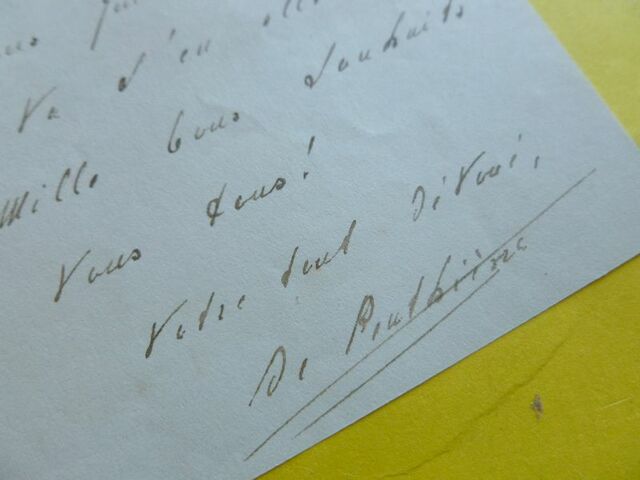 va d'en
Mille bons souhaits
vous tous!
Votre tout dévoué,
De Penthièvre